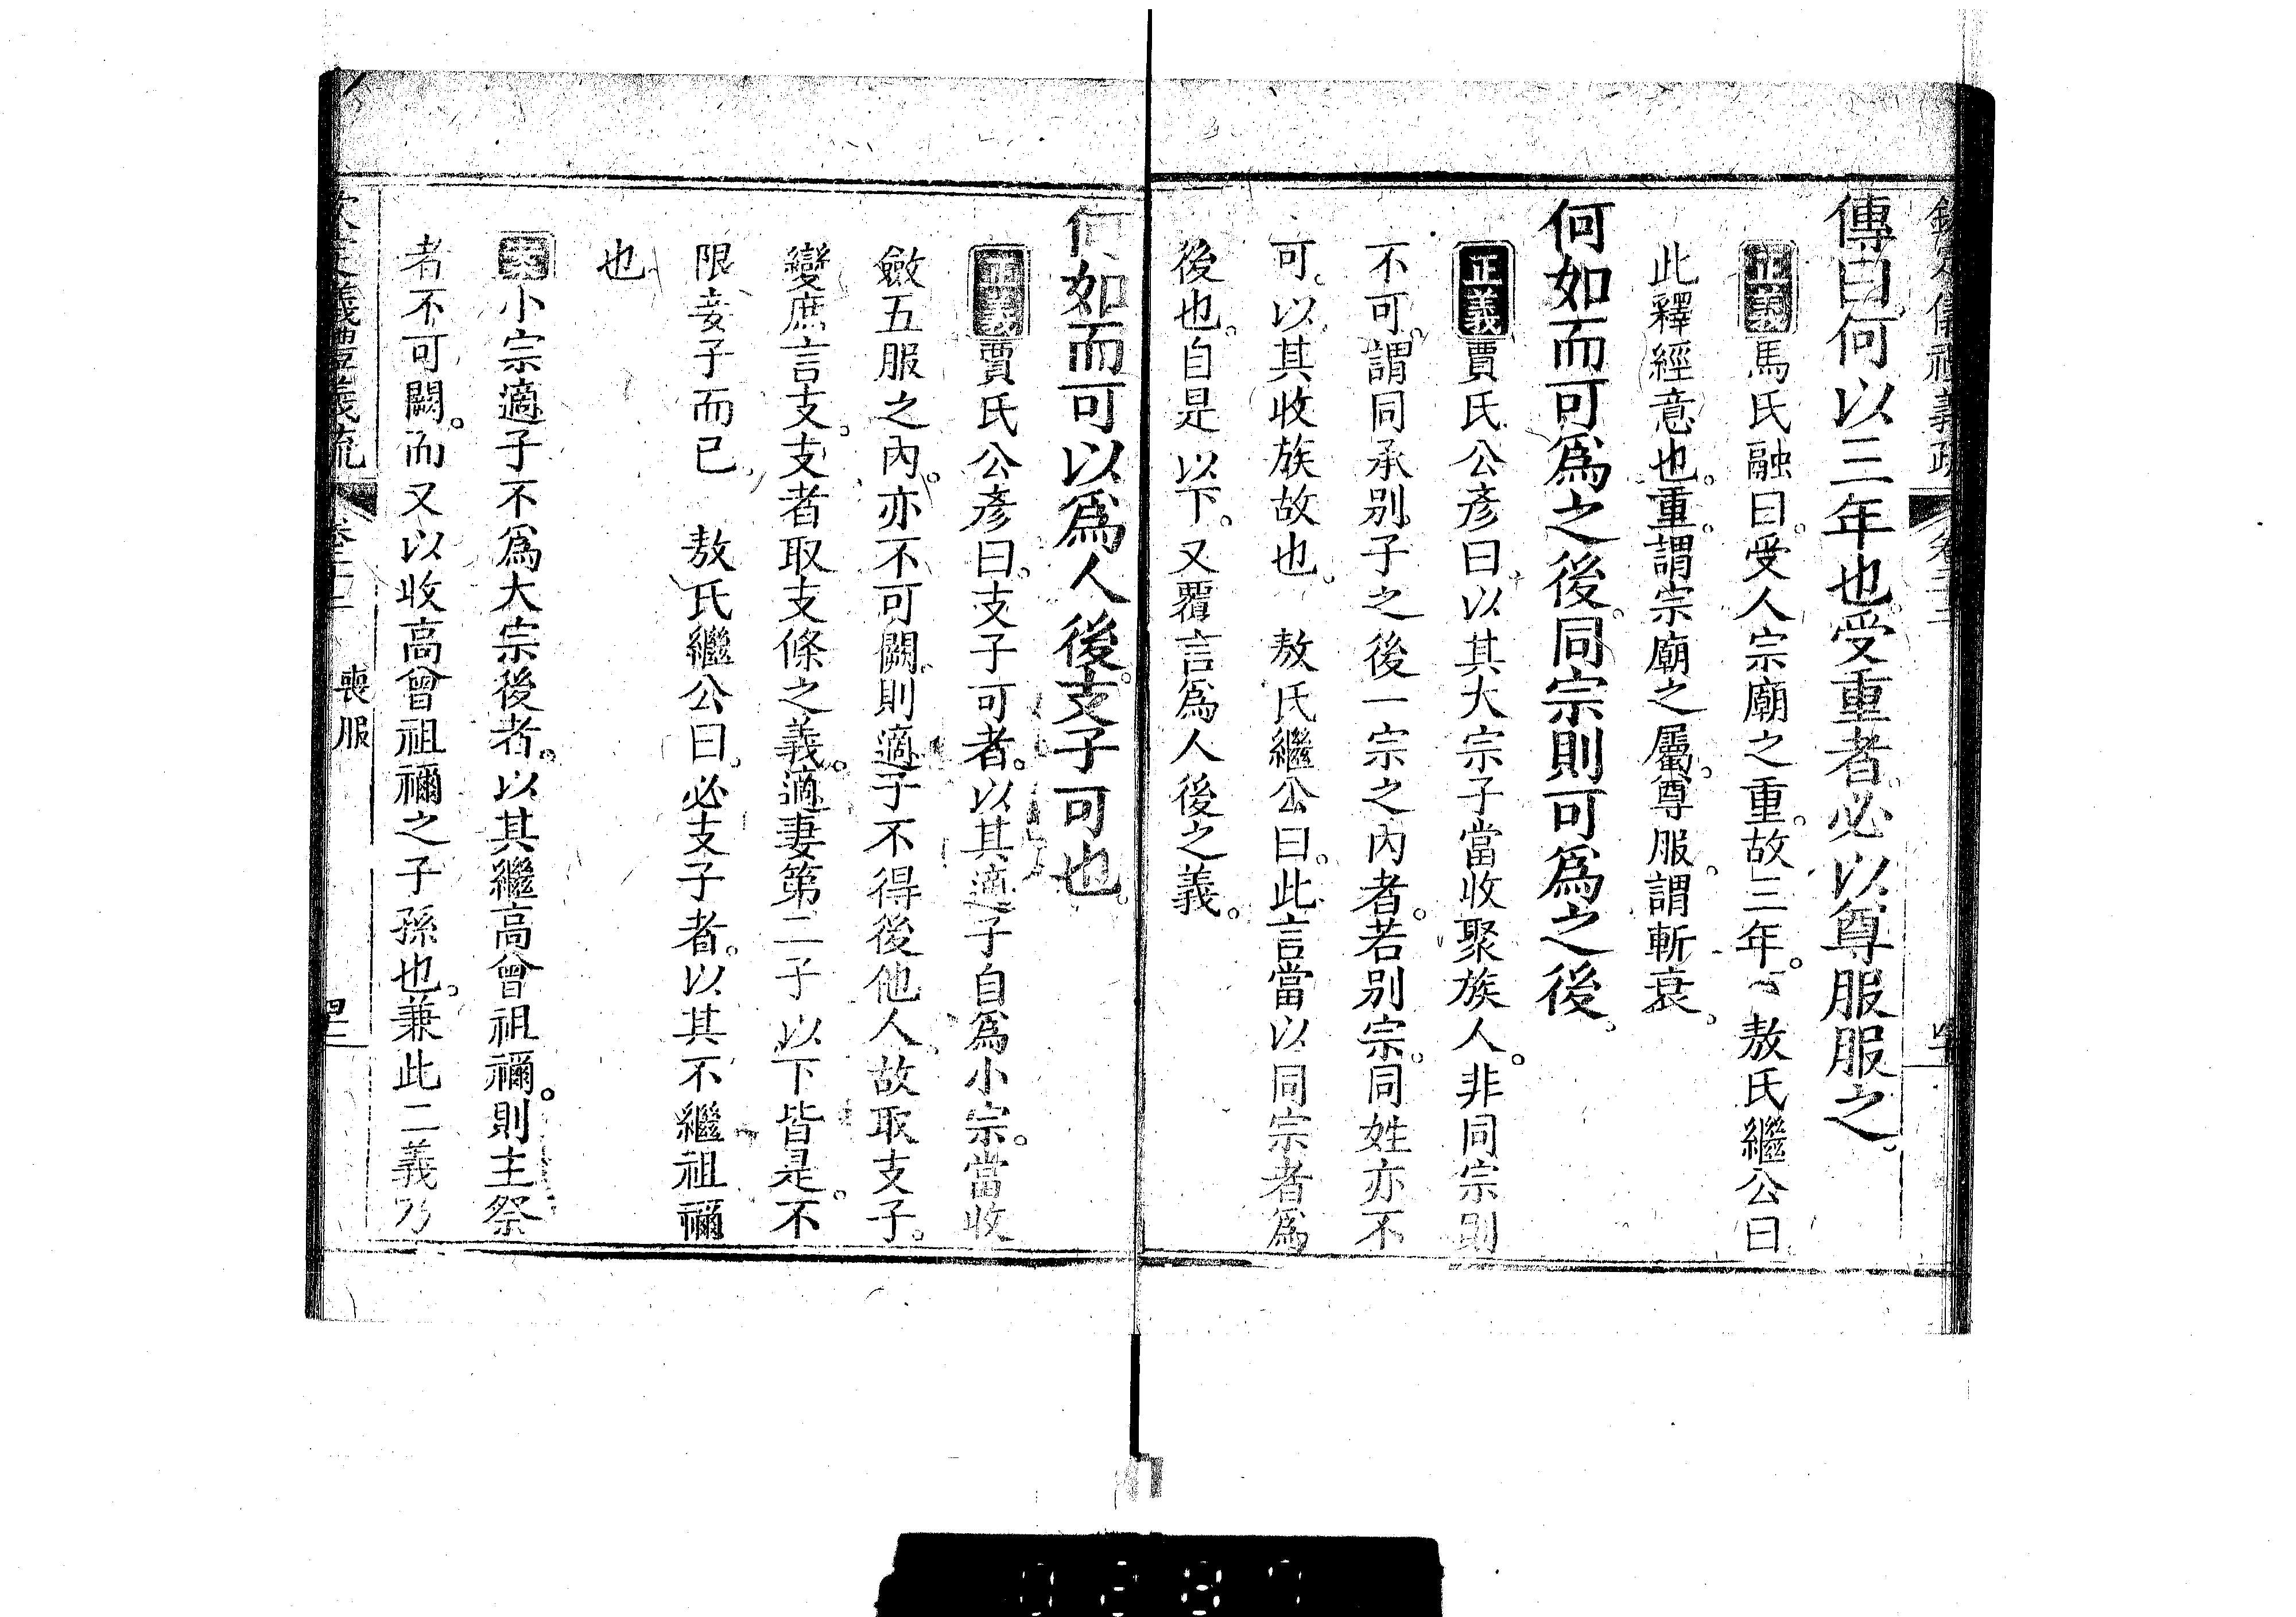 傳曰何以三年也受重者必以尊服服之
正義馬氏融曰受人宗廟之重故三年 敖氏繼公曰
此釋經意也重謂宗廟之屬尊服謂斬衰
何如而可爲之後同宗則可爲之後
正義賈氏公彥曰以其大宗子當收聚族人非同宗則
不可謂同承別子之後一宗之內者若別宗同姓亦不
可以其收族故也 敖氏繼公曰此言當以同宗者爲
後也自是以下又覆言爲人後之義
何如而可以爲人後支子可也
正義賈氏公彥曰支子可者以其適子自爲小宗當收
斂五服之內亦不可闕則適子不得後他人故取支子
變庶言支支者取支條之義適妻第二子以下皆是不
限妾子而已 敖氏繼公曰必支子者以其不繼祖禰
也
案小宗適子不爲大宗後者以其繼高曾祖禰則主祭
者不可闕而又以收高曾祖禰之子孫也兼此二義乃
喪服